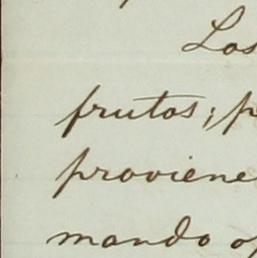 Los
frutos; p
proviene
mando o